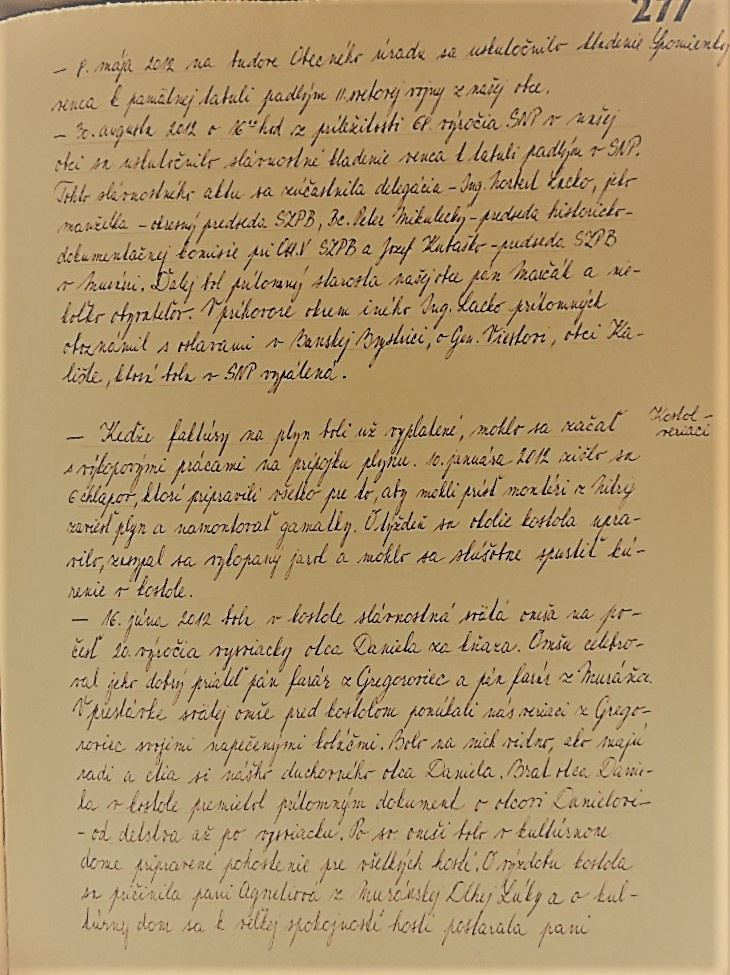 277
– 8. mája 2012 na budove Obecného úradu sa uskutočnilo kladenie Spomienky
venca k pamätnej tabuli padlým II. svetovej vojny z našej obce.
– 30. augusta 2012 o 16 hod z príležitosti 68. výročia SNP v našej
obci sa uskutočnilo slávnostné kladenie venca k tabuli padlým v SNP.
Tohto slávnostného aktu sa zúčastnila delegácia – Ing. Norbert Lacko, jeho
manželka – okresný predseda SZPB, Bc. Peter Mikulecký – predseda historicko-
dokumentačnej komisie pri SZPB a Jozef Kubaško – predseda SZPB
v Muráni. Ďalej bol prítomný starosta našej obce pán Marčák a nie-
koľko obyvateľov. V príhovore okrem iného Ing. Lacko prítomných
oboznámil s oslavami v Banskej Bystrici, o Gen. Viestovi, obci Ka-
lište, ktorá bola v SNP vypálená.
– Keďže faktúry na plyn boli už vyplatené, mohlo sa začať
Kostol –
veriaci
s výkopovými prácami na prípojku plynu. 10. januára 2012 zišlo sa
6 chlapov, ktorí pripravili všetko pre to, aby mohli prísť montéri z Nitry
zaviesť plyn a namontovať gamatky. O týždeň sa okolie kostola upra-
vilo, zasypal sa vykopaný jarok a mohlo sa slúšobne spustiť kú-
renie v kostole.
– 16. júna 2012 bola v kostole slávnostná svätá omša na po-
česť 20. výročia vysviacky otca Daniela za kňaza. Omšu celebro-
val jeho dobrý priateľ pán farár z Gregoroviec a pán farár z Muráňa.
V prestávke svätej omše pred kostolom ponúkali nás veriaci z Grego-
roviec svojimi napečenými koláčmi. Bolo na nich vidno, ako majú
radi a ctia si nášho duchovného otca Daniela. Brat otca Danie-
la v kostole premietol prítomným dokument o otcovi Danielovi –
– od detstva až po vysviacku. Po sv. omši bolo v kultúrnom
dome pripravené pohostenie pre všetkých hostí. O výzdobu kostola
sa pričinila pani Agnetiová z Muránskej Dlhej Lúky a o kul-
túrny dom sa k veľkej spokojnosti hostí postarala pani